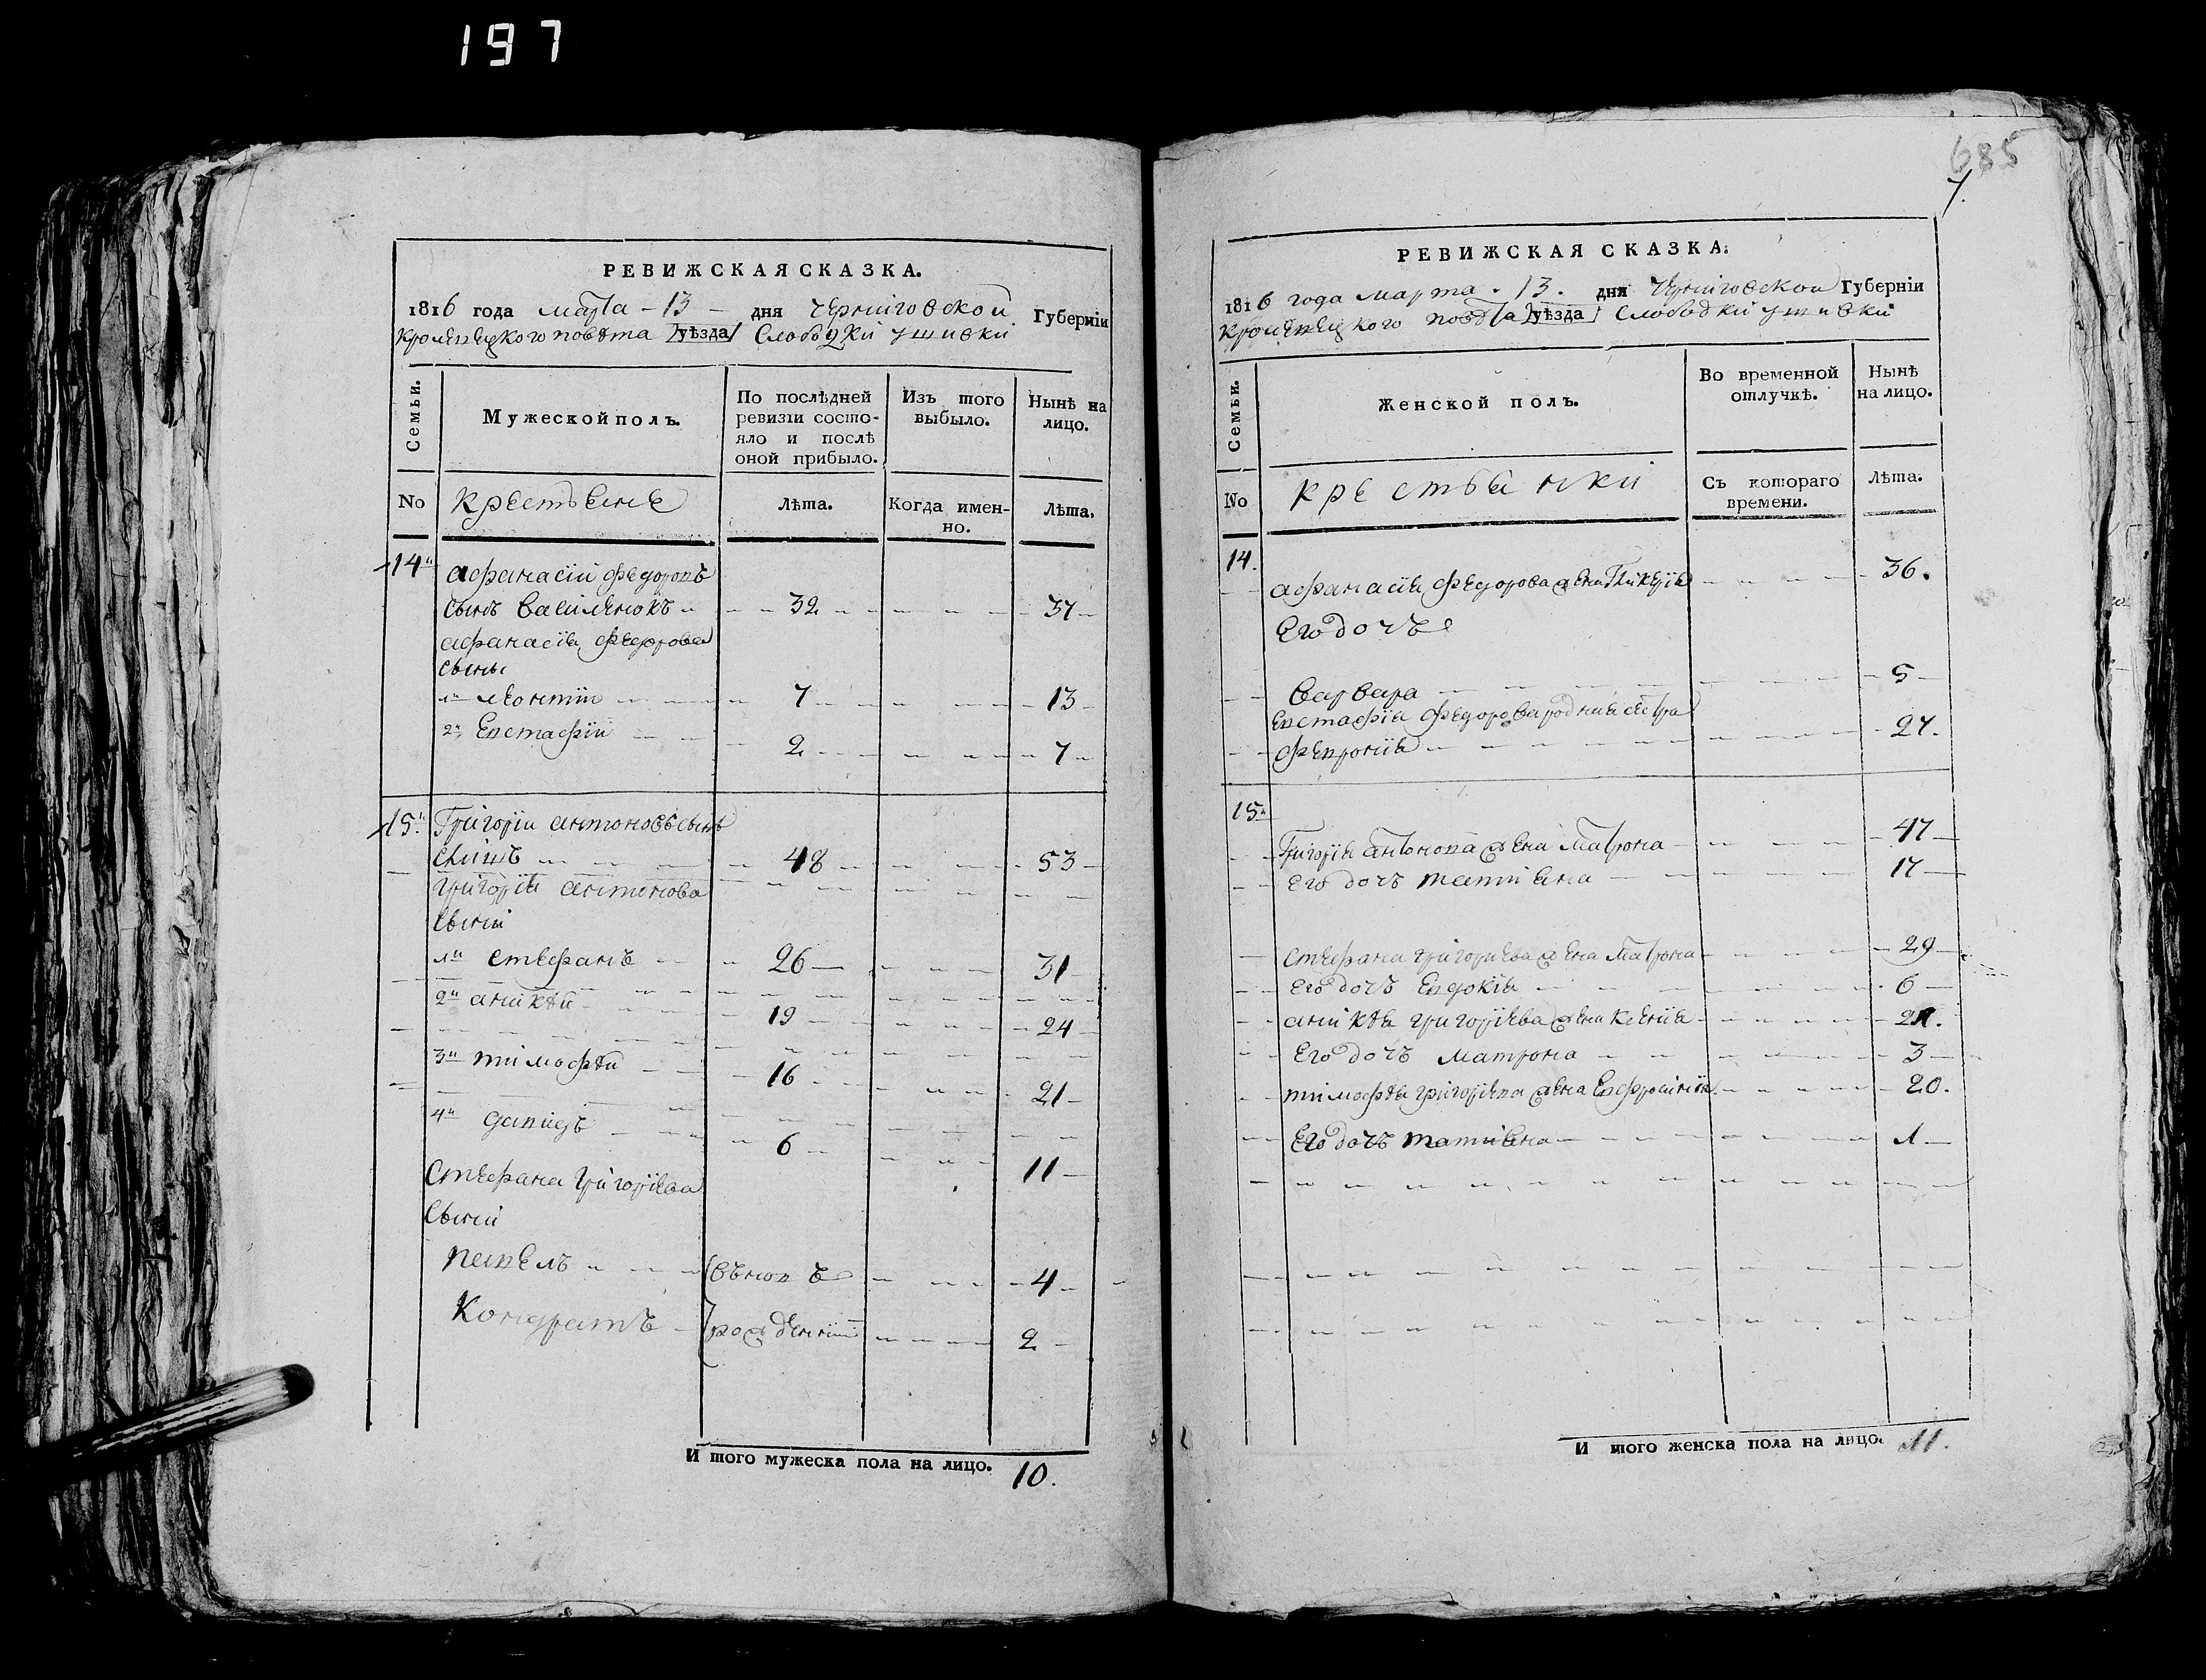 197
РЕВИЖСКАЯ СКАЗКА.
1816 года марта - 13 - дня Черниговской Губерніи
Кролевецкого повѣта уѣзда Слободки ушивки
Семьи.
Мужеской полъ.
По послѣдней ревизіи состо-
яло и послѣ
оной прибыло.
Изъ того
выбыло.
Нынѣ на
лицо.
No
крестьяне
Лѣта.
Когда имен-
но.
Лѣта.
14
Афанасій Федоровъ
сынъ Василенокъ 32 37
Афанасія Федорова
сыны
1й Леонтій 7 13
2й Евстафій 2 7
15
Григорій Антоновъ сынъ
48 53
Григорія Антонова
сыний
1й Стефанъ 26 31
2й Аникѣй 19 24
3й Тимофѣй 16 21
4й Давидъ 6 11
Стефана Григоріева
сыний
Павелъ вѣновѣ 4
Кондратъ рожденній 2
И того мужеска пола на лицо. 10.
685
7.
РЕВИЖСКАЯ СКАЗКА.
1816 года Марта 13. дня Черниговской Губерніи
Кролевецкого повѣта уѣзда Слободки ушивки
Семьи.
Женской полъ.
Во временной
отлучкѣ.
Нынѣ
на лицо.
No
крестьянки
Съ котораго
времени.
Лѣта.
14.
Афанасія Федорова жена Гликерія 36.
Его дочь
Варвара 5
Евстафія Федорова родная сестра
Февронія 27.
15
Григорія Антонова жена Матрона 47
Его дочъ Татияна 17
Стефана Григориева жена Матрона 29
Его дочъ Евдокія 6
Аникѣя Григоріева жена Ксенія 21.
Его дочъ Матрона 3
Тимофѣя Григоріева жена Евфросинія 20.
Его дочъ Татияна 1
И того женска пола на лицо. 11.